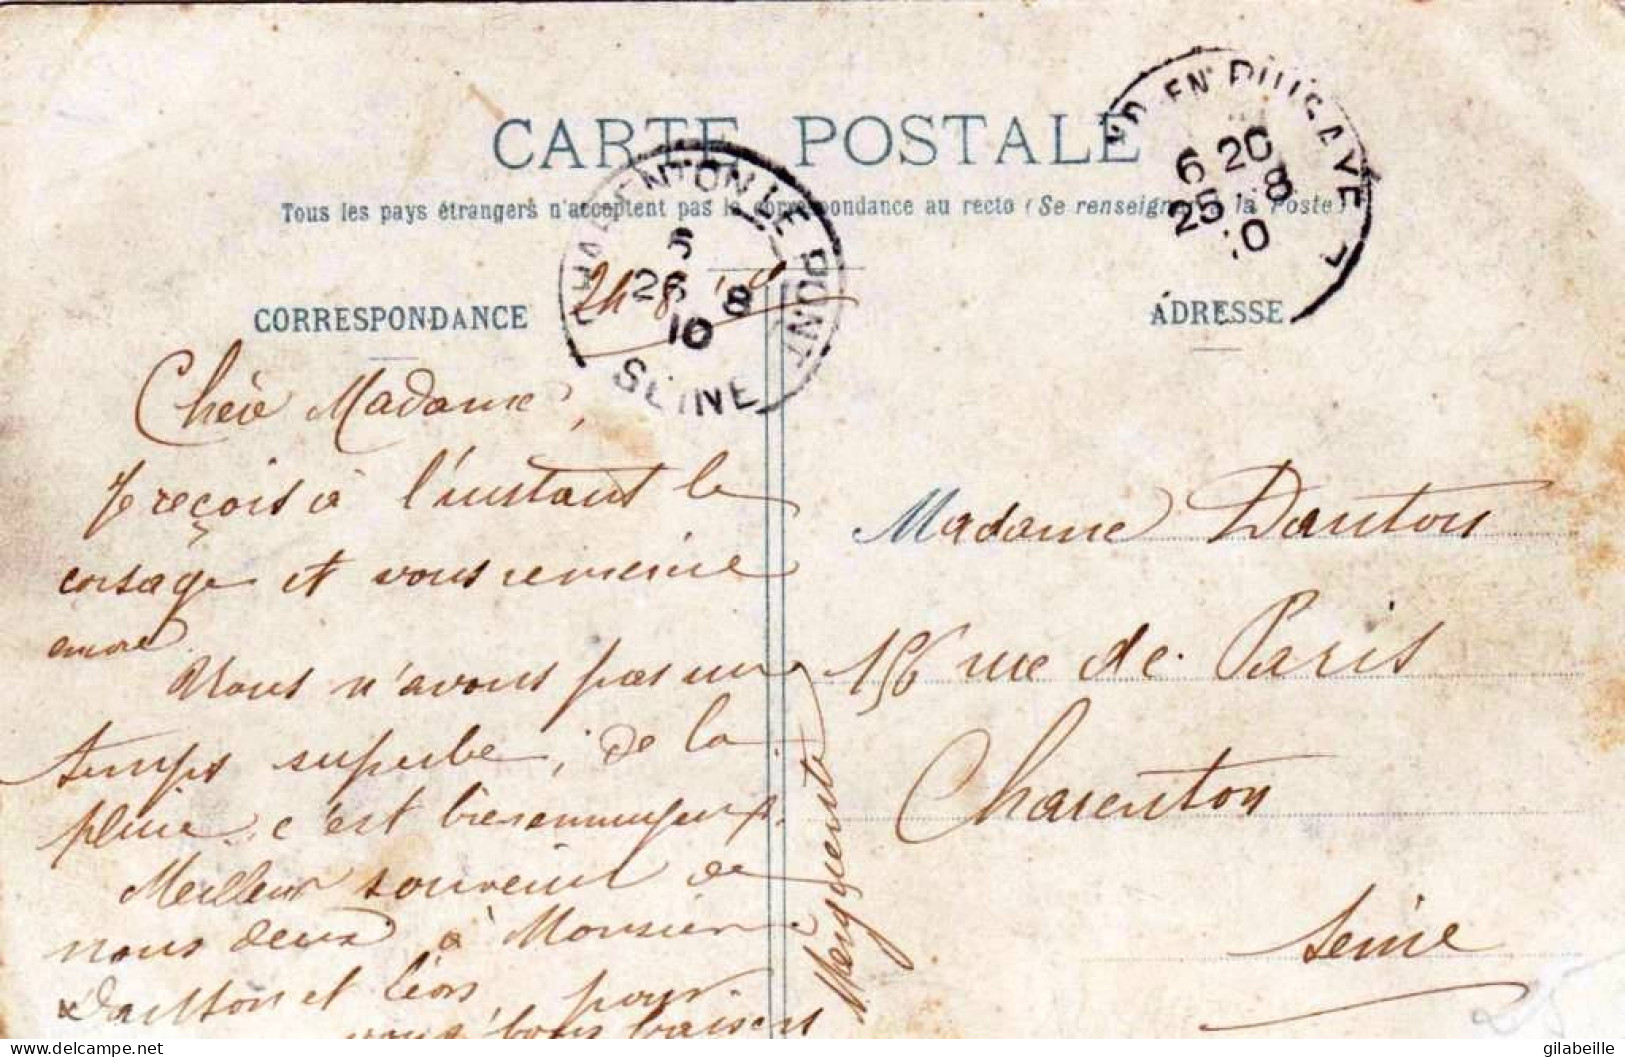 CARTE POSTALE
Tous les pays étrangers n'acceptent pas la correspondance au recto (Se renseigner à la Poste)
CHARENTON LE PONT
5
26 8
10
SEINE
EN PUISAYE
6 20
25 8
10
24 8
CORRESPONDANCE
ADRESSE
Chère Madame,
Je reçois à l'instant le
corsage et vous remercie
encore.
Nous n'avons pas un
temps superbe, de la
pluie, c'est bien ennuyeux.
Meilleur souvenir de
nous deux à Monsieur
Dautton et Léon, pour
vous bons baisers
Marguerite
Madame Dauton
156 rue de Paris
Charenton
Seine
delcampe.net
gilabeille